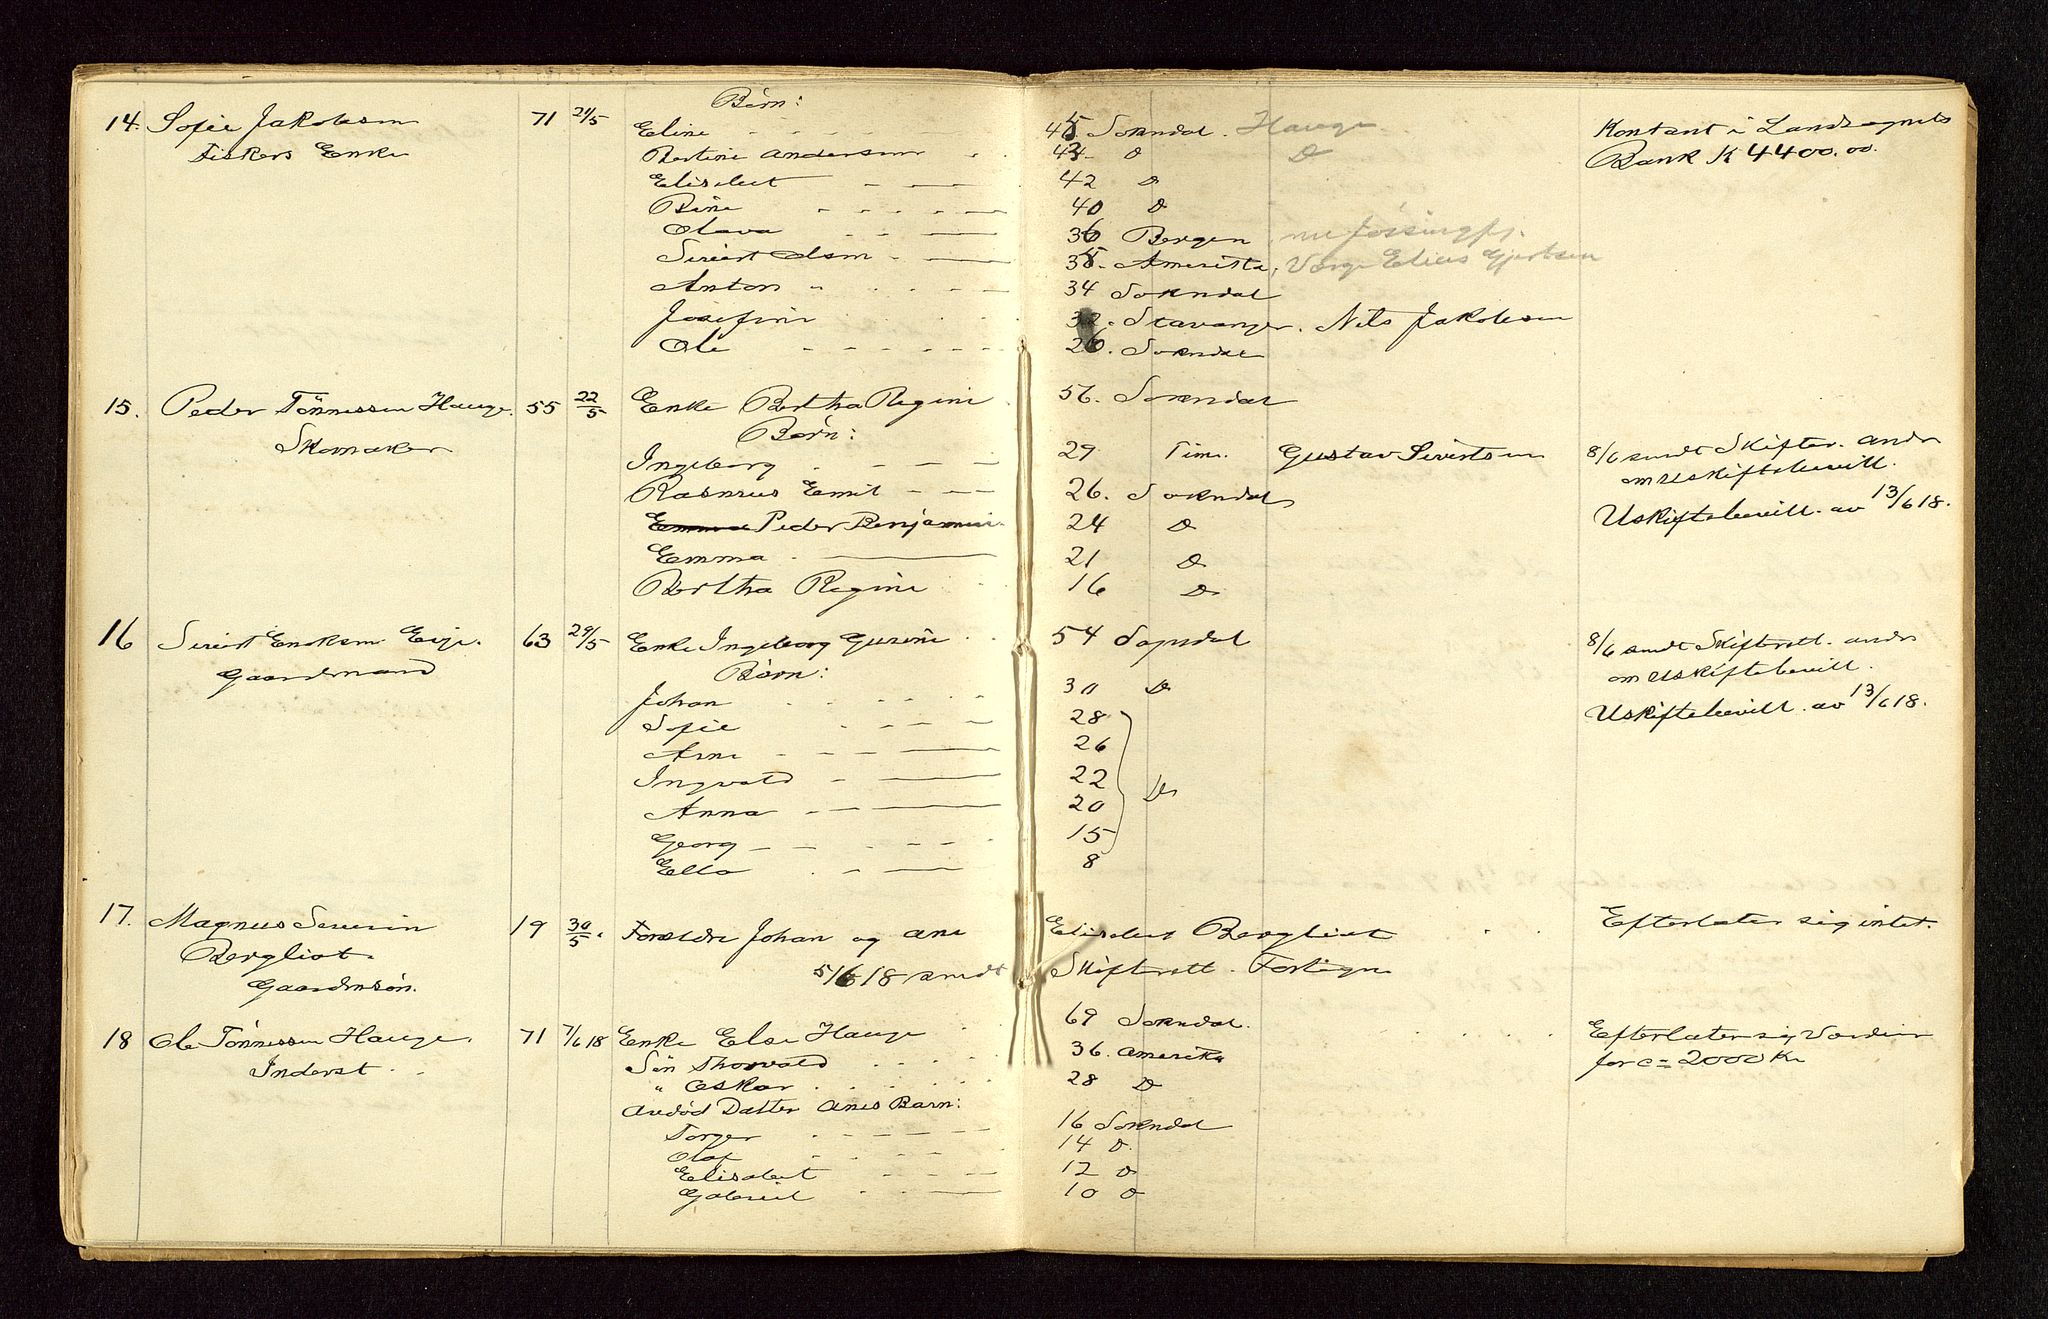 Børn:
14. Sofie Jakobsen 71 21/5 Eline 45 Sokndal. Hauge Kontant i Landsognets
Fiskers Enke Bertine Andersen 43 D D Bank K 4400.00.
Elisabet 42 D
Bine 40 D
Olava 36 Bergen nu Jøssingfj.
Sivert Olsen 35. Amerika, Verge Elias Gjertsen
Anton 34 Sokndal
Josefine 32. Stavanger. Nils Jakobsen
Ole 26. Sokndal
15. Peder Tönnessen Hauge. 55 22/5 Enke Bertha Regine 56. Sokndal
Skomaker Børn:
Ingeborg 29 Time. Gustav Sivertsen 8/6 sendt Skifter. andr
Rasmus Emil 26. Sokndal om Uskiftebevill.
Peder Benjamin 24 D Uskiftebevill. av 13/6 18.
Emma 21 D
Bertha Regine 16 D
16 Sivert Eriksen Eije. 63 29/5 Enke Ingeborg Gurine 54 Sogndal 8/6 sendt Skifterett. andr
Gaardmand Børn: om Uskiftebevill.
Johan 30 D
Sofie 28 Uskiftebevill. av 13/6 18.
Arne 26
Ingvald 22 D
Anna 20
Georg 15
Ella 8
17. Magnus Severin 19 30/5. Forældre Johan og Ane Elisabet Bergliot Efterlater sig intet.
Bergliot. 5/6 18 sendt Skifterett. Fortegn
Gaardmsøn.
18 Ole Tönnessen Hauge. 71 7/6 18 Enke Else Hauge 69 Sokndal. Efterlater sig Værdier
Inderst Sön Thorvald 36. Amerika for c = 2000 Kr
" Oskar 28 D
Avdöd Datter Anes Barn:
Torger 16 Sokndal
Olaf 14 D.
Elisabet 12 D
Gabriel 10 D